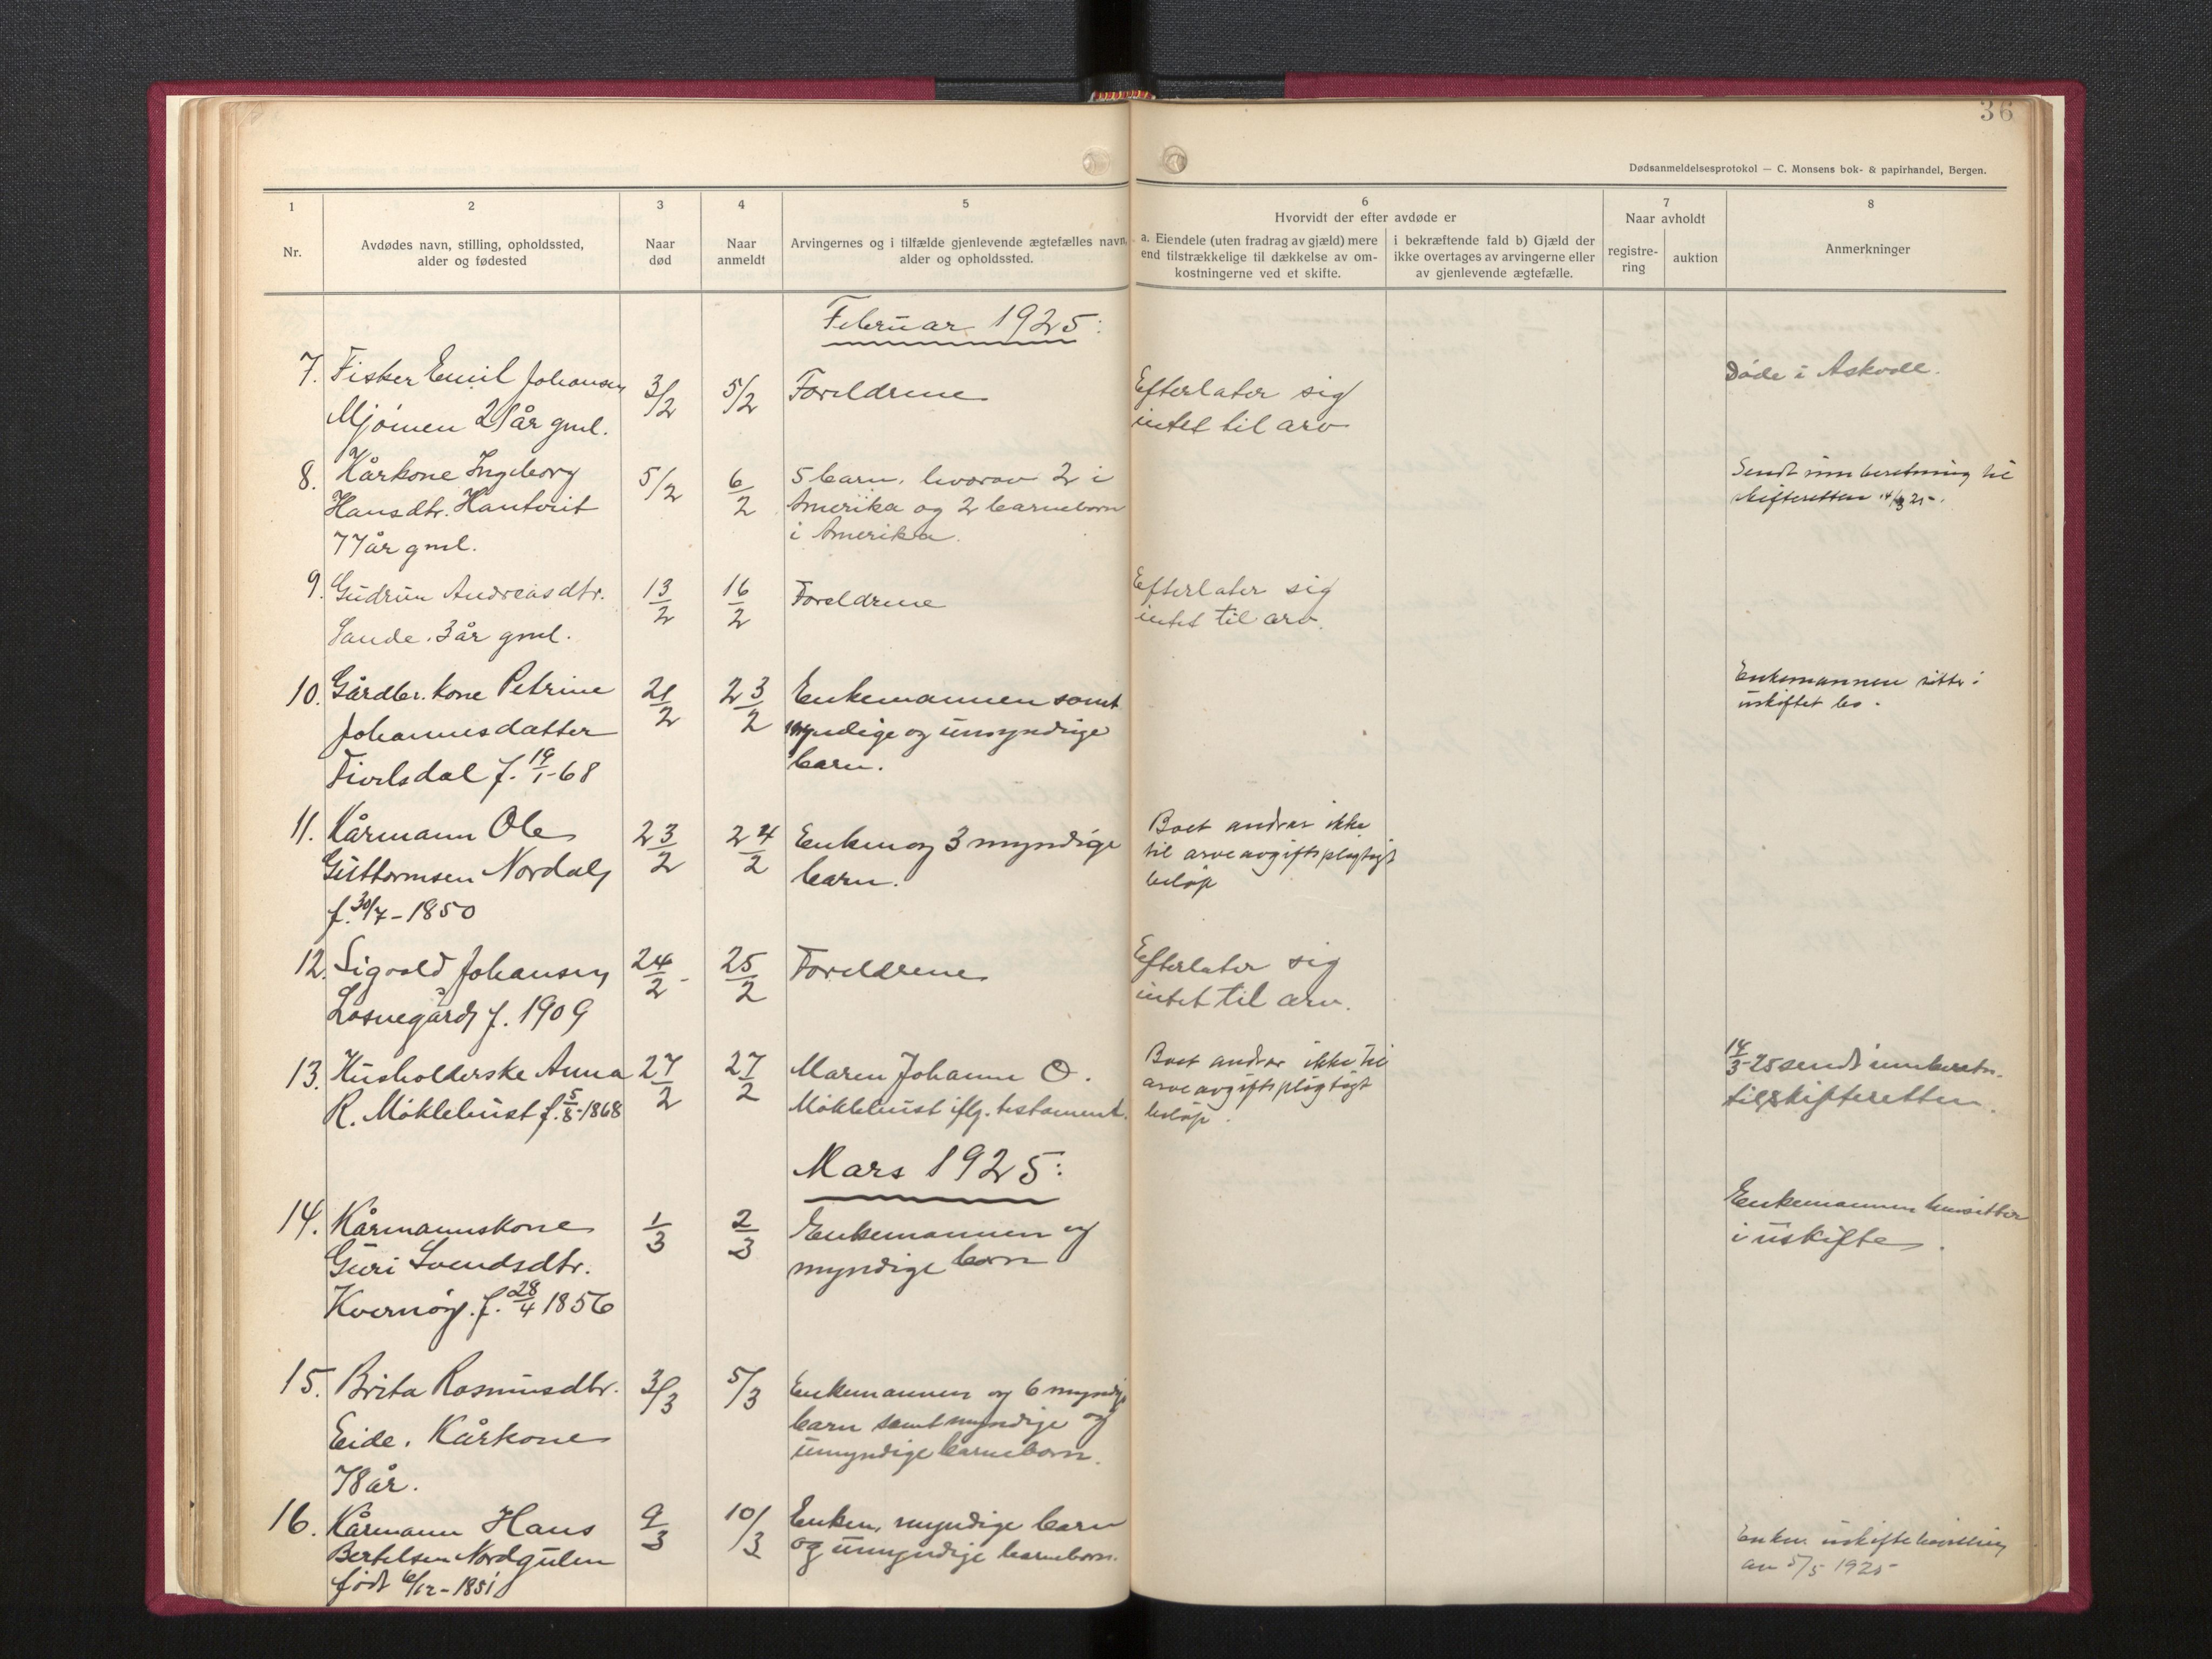 36
Dødsanmeldelsesprotokol — C. Monsens bok- & papirhandel, Bergen.
1
2
3
4
5
6
7
8
Nr.
Avdødes navn, stilling, opholdssted,
alder og fødested
Naar
død
Naar
anmeldt
Arvingernes og i tilfælde gjenlevende ægtefælles navn,
alder og opholdssted.
Hvorvidt der efter avdøde er
a. Eiendele (uten fradrag av gjæld) mere
end tilstrækkelige til dækkelse av om-
kostningerne ved et skifte.
i bekræftende fald b) Gjæld der
ikke overtages av arvingerne eller
av gjenlevende ægtefælle.
Naar avholdt
registre-
ring
auktion
Anmerkninger
Februar 1925:
7. Fisker Emil Johansen
Mjömen 28 år gml.
3/2
5/2
Foreldrene
Efterlater sig
intet til arv
Döde i Askvoll.
8. Kårkone Ingeborg
Hansdtr. Hantveit
77 år gml.
5/2
6/2
5 barn, hvorav 2 i
Amerika og 2 barneborn
i Amerika.
Sendt innberetning til
skifteretten 14/3 25-.
9. Gudrun Andreasdtr.
Sande. 3 år gml.
13/2
16/2
Foreldrene
Efterlater sig
intet til arv.
10. Gårdbr. kone Petrine
Johannesdatter
Tivelsdal f. 19/1-68
21/2
23/2
Enkemannen samt
myndige og umyndige
barn.
Enkemannen sitter i
uskiftet bo.
11. Kårmann Ole
Guttormsen Nordal,
f. 30/7-1850
23/2
24/2
Enken og 3 myndige
barn.
Boet andrar ikke
til arveavgiftspligtigt
beløp
12. Sigvald Johansen
Losnegård, f. 1909
24/2-
25/2
Foreldrene
Efterlater sig
intet til arv.
13. Husholderske Anna
R. Möklebust f. 5/8-1868
27/2
27/2
Maren Johanne O.
Möklebust iflg. testament.
Boet andrar ikke til
arveavgiftspligtigt
beløp.
14/3-25 sendt innberetn.
til skifteretten.
Mars 1925:
14. Kårmannskone
Guri Svendsdtr.
Kvernöy. f. 28/4 1856
1/3
2/3
Enkemannen og
myndige born
Enkemannen hensitter
i uskifte.
15. Brita Rasmusdtr.
Eide. Kårkone
78 år.
3/3
5/3
Enkemannen og 6 myndige
barn samt myndige og
umyndige barneborn.
16. Kårmann Hans
Bertelsen Nordgulen
født 6/12-1851
9/3
10/3
Enken, myndige barn
og umyndige barneborn.
Enken uskiftebevilling
5/5 1925-